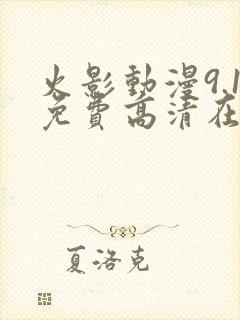 火影動漫9.1
免費高清在
夏洛克